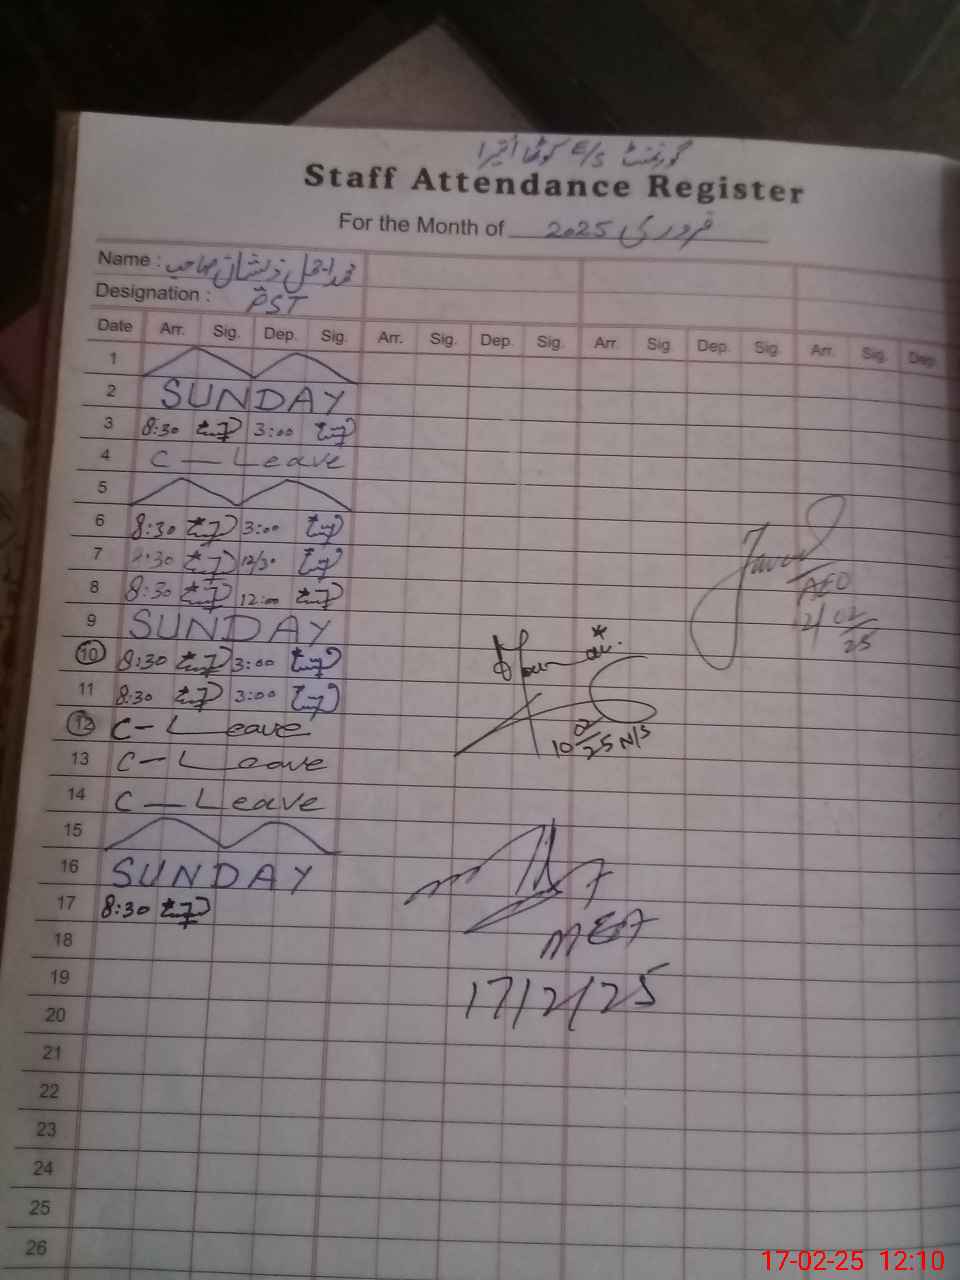 گورنمنٹ E/S کوٹھا
Staff Attendance Register
For the Month of فروری 2025
Name : محمد اجمل ذیشان صاحب
Designation : PST
Date Arr. Sig. Dep. Sig. Arr. Sig. Dep. Sig. Arr. Sig. Dep. Sig. Arr. Sig. Dep.
1
2 SUNDAY
3 8:30 3:00
4 C - Leave
5
6 8:30 3:00
7 8:30 12/30
8 8:30 12:00
9 SUNDAY
10 8:30 3:00
11 8:30 3:00
12 C - Leave
13 C - Leave
14 C - Leave
15
16 SUNDAY
17 8:30
18
19
20
21
22
23
24
25
26
AEO
02
25
10 02/25 N/S
MEA
17/2/25
17-02-25 12:10